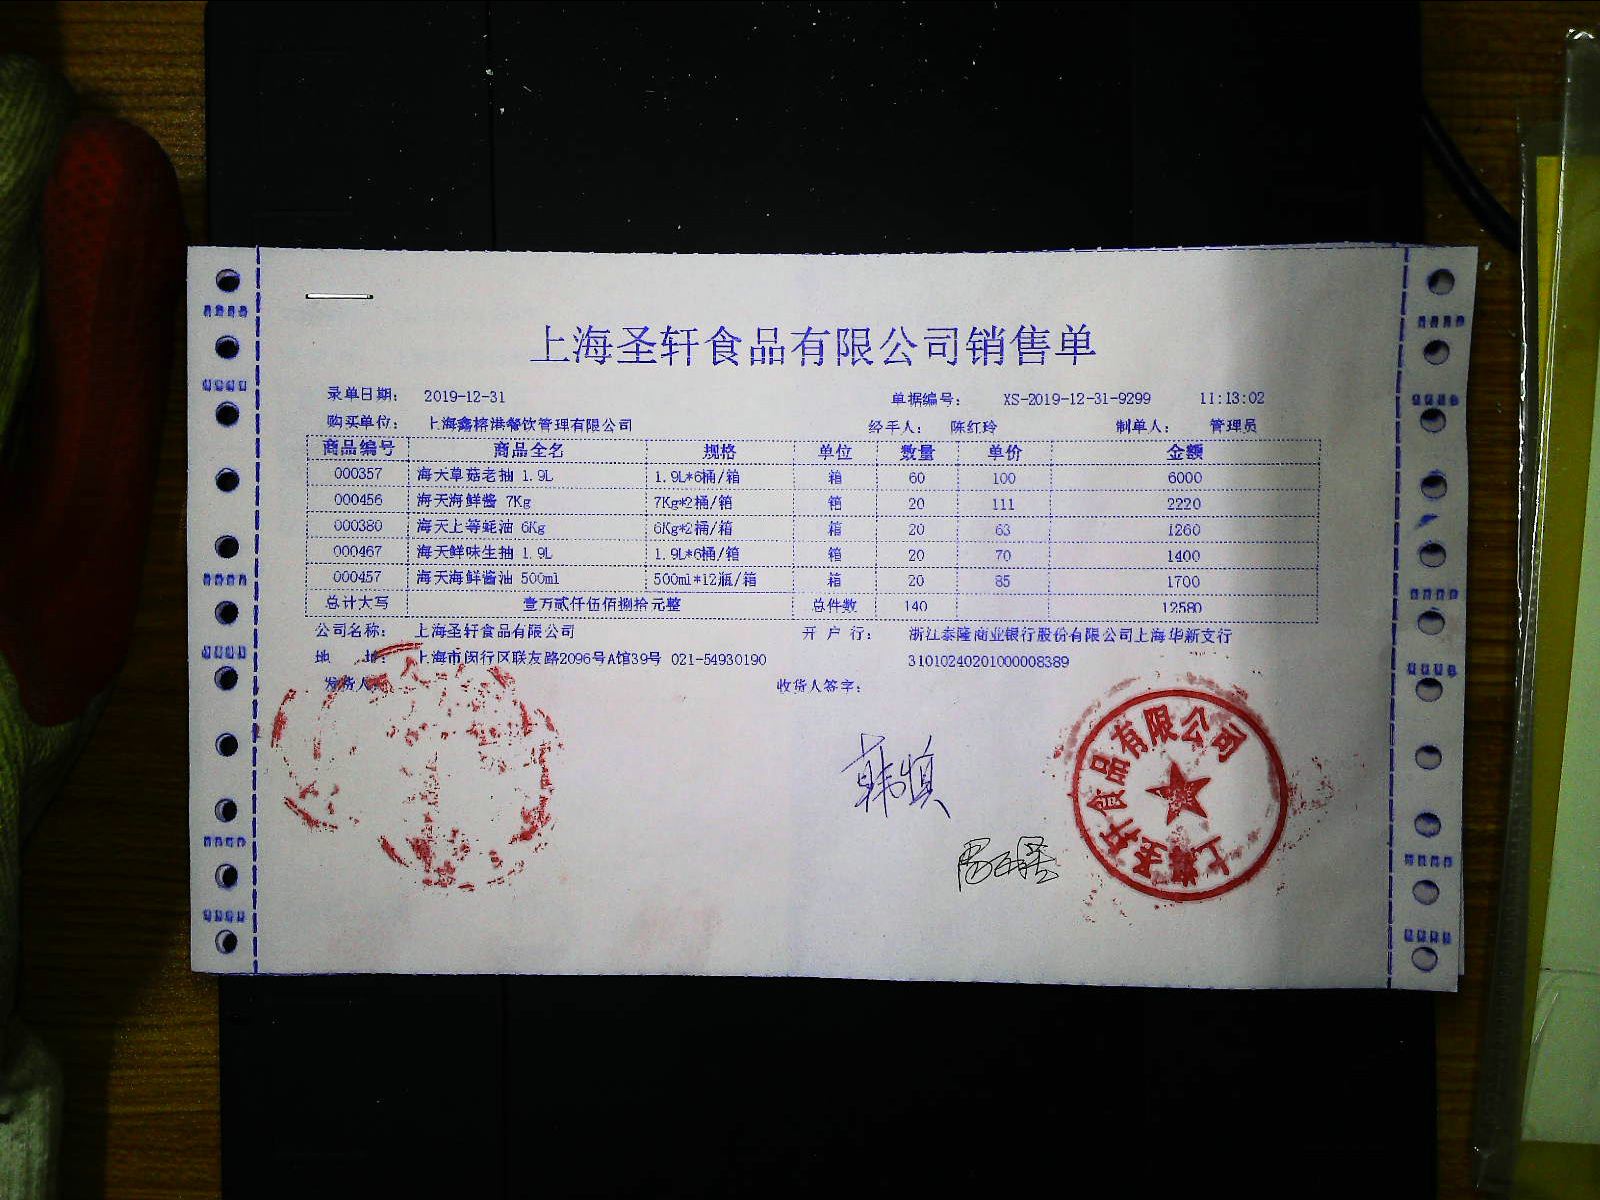 上海圣轩食品有限公司销售单
录单日期： 2019-12-31 单据编号： XS-2019-12-31-9299 11:13:02
购买单位： 上海鑫榕港餐饮管理有限公司 经手人： 陈红玲 制单人： 管理员
商品编号 商品全名 规格 单位 数量 单价 金额
000357 海天草菇老抽 1.9L 1.9L*6桶/箱 箱 60 100 6000
000456 海天海鲜酱 7Kg 7Kg*2桶/箱 箱 20 111 2220
000380 海天上等蚝油 6Kg 6Kg*2桶/箱 箱 20 63 1260
000467 海天鲜味生抽 1.9L 1.9L*6桶/箱 箱 20 70 1400
000457 海天海鲜酱油 500ml 500ml*12瓶/箱 箱 20 85 1700
总计大写 壹万贰仟伍佰捌拾元整 总件数 140 12580
公司名称： 上海圣轩食品有限公司 开 户 行： 浙江泰隆商业银行股份有限公司上海华新支行
地 址： 上海市闵行区联友路2096号A馆39号 021-54930190 31010240201000008389
发货人 收货人签字：
韩慎
上海圣轩食品有限公司